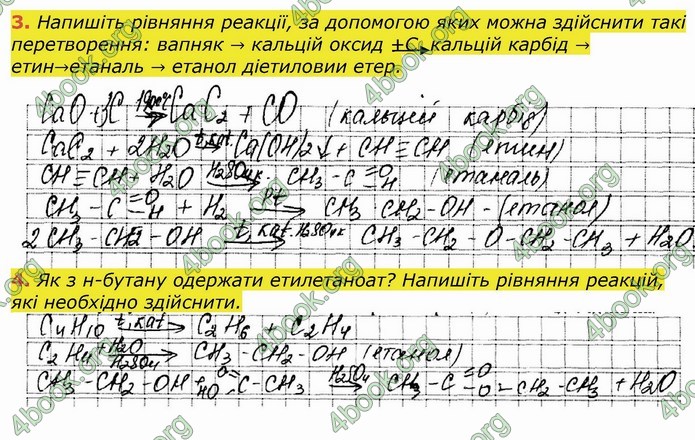 3. Напишіть рівняння реакції, за допомогою яких можна здійснити такі
перетворення: вапняк → кальцій оксид +C→ кальцій карбід →
етин→етаналь → етанол діетиловии етер.
CaO + 3C → CaC2 + CO (кальцій карбід)
CaC2 + 2H2O t, kat→ Ca(OH)2↓ + CH≡CH (етин)
CH≡CH + H2O H2SO4 к.→ CH3-C=O H (етаналь)
CH3-C=O-H + H2 Pt→ CH3 CH2-OH - (етанол)
2 CH3-CH2-OH t, kat-H2SO4к→ CH3-CH2-O-CH2-CH3 + H2O
4. Як з н-бутану одержати етилетаноат? Напишіть рівняння реакцій,
які необхідно здійснити.
C4H10 t, kat→ C2H6 + C2H4
C2H4 + H2O H2SO4→ CH3-CH2-OH (етанол)
CH3-CH2-OH + O= HO-C-CH3 H2SO4→ CH3-C=O -O-CH2-CH3 + H2O
4book.org